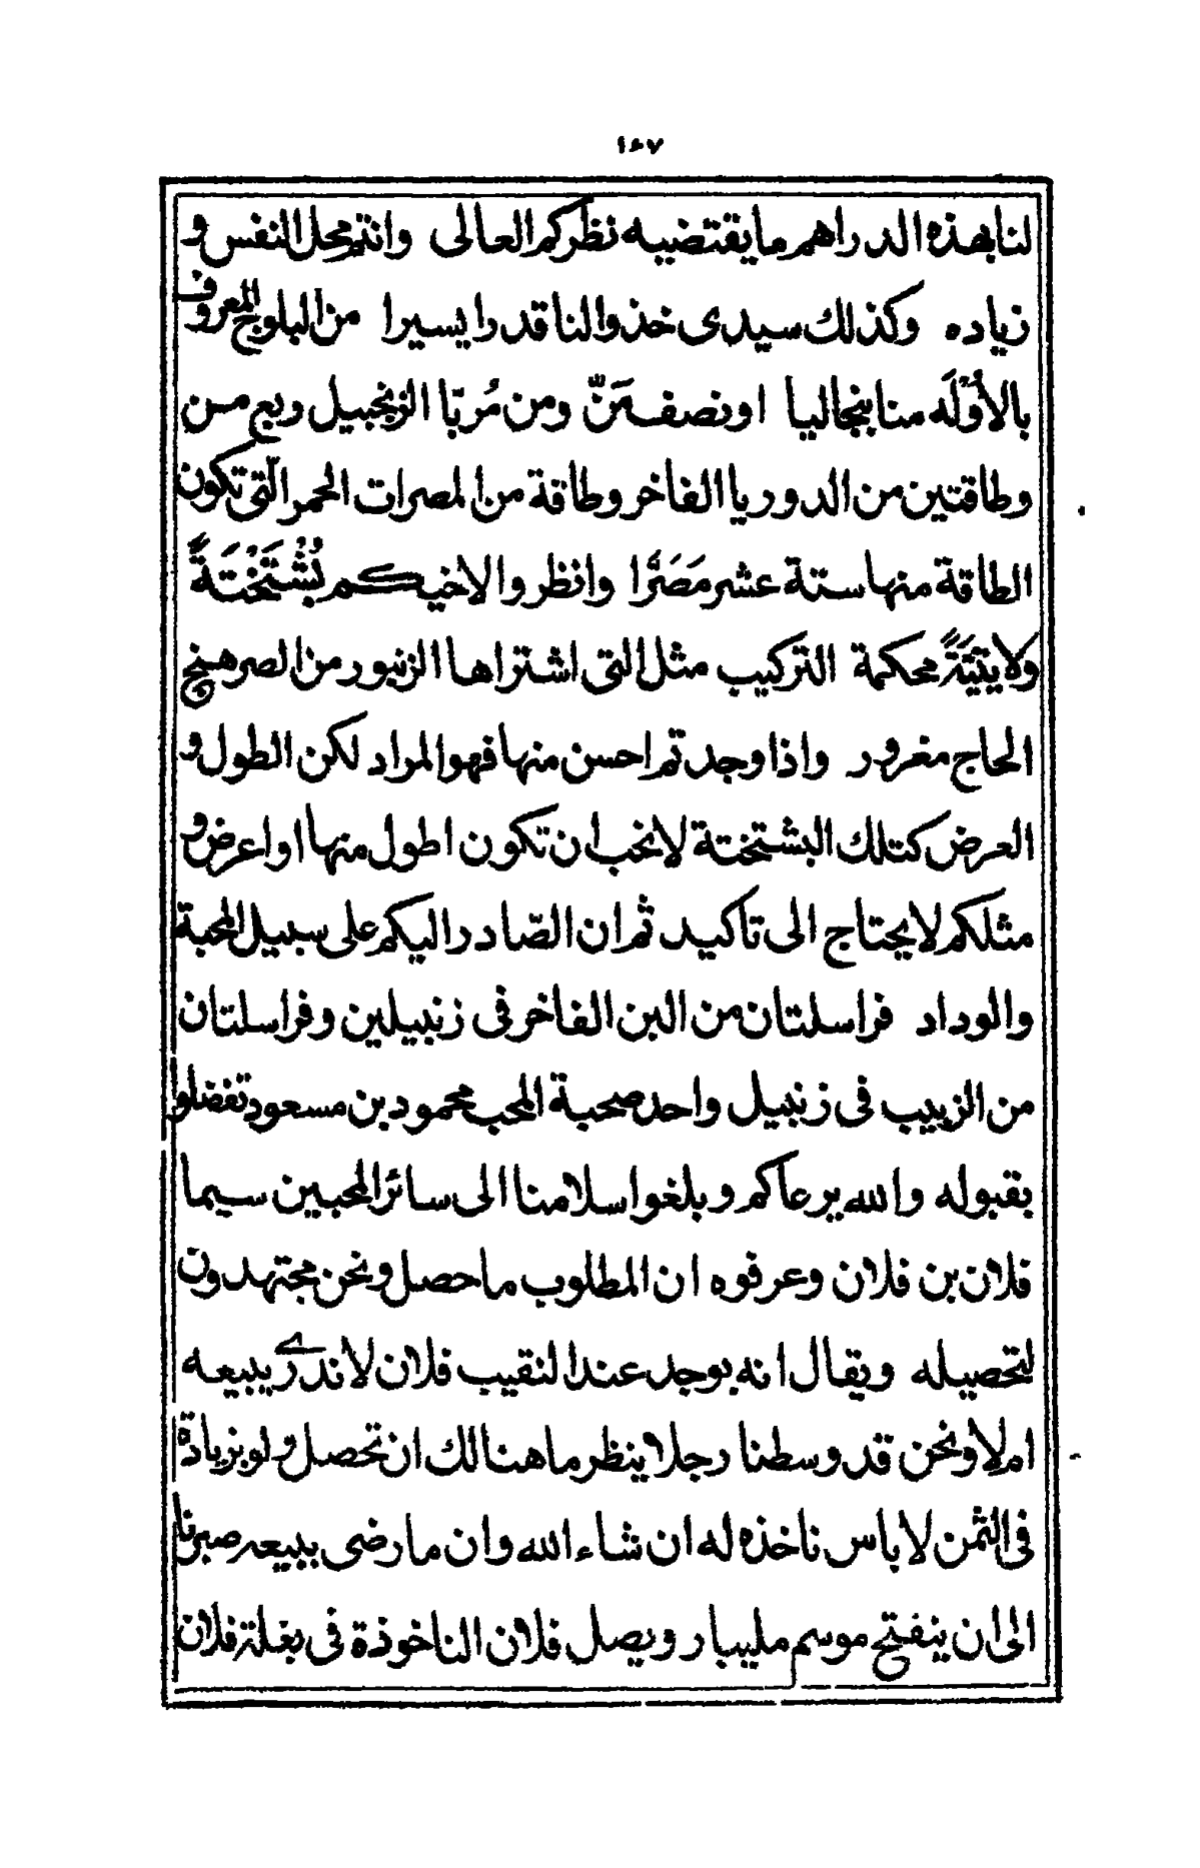 ١٤٧
لنا بهذه الدراهم ما يقتضيه نظركم العالى وانتم محل النفس و
زياده وكذلك سيدى خذوا لنا قدرا يسيرا من البلوج المعروف
بالأوْلَه منا بنجاليا او نصف مَنّ ومن مُربّا الزنجبيل ربع من
وطاقتين من الدوريا الفاخر وطاقة من المصرات الحمر الّتى تكون
الطاقة منها ستة عشر مَصَرًّا وانظروا لاخيكم بُشْتَخْتَةً
ولايتيَّةً محكمة التركيب مثل التى اشتراها الزنبور من الصرهنج
الحاج مغرور واذا وجدتم احسن منها فهو المراد لكن الطول و
العرض كتلك البشتختة لا نحب ان تكون اطول منها او اعرض و
مثلكم لا يحتاج الى تاكيد ثم ان الصّادر اليكم على سبيل المحبة
والوداد فراسلتان من البن الفاخر فى زنبيلين وفراسلتان
من الزبيب فى زنبيل واحد صحبة المحب محمود بن مسعود تفضلوا
بقبوله والله يرعاكم وبلغوا سلامنا الى سائر المحبين سيما
فلان بن فلان وعرفوه ان المطلوب ما حصل ونحن مجتهدون
لتحصيله ويقال انه يوجد عند النقيب فلان لا ندرى يبيعه
ام لا ونحن قد وسطنا رجلا ينظر ما هنالك ان تحصل ولو بزيادة
فى الثمن لا باس ناخذه له ان شاء الله وان ما رضى ببيعه صبرنا
الى ان ينفتح موسم مليبار ويصل فلان الناخوذة فى بغلة فلان